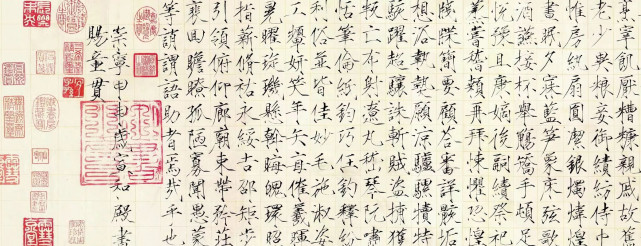 亨宰飢厭糟糠親戚故舊
老少異粮妾御績紡侍巾
帷房紈扇圓潔銀燭煒煌
晝眠夕寐藍笋象床弦歌
酒讌接杯舉觴矯手頓足
悅豫且康嫡後嗣續祭祀
蒸嘗稽顙再拜悚懼恐惶
牋牒簡要顧答審詳骸垢
想浴執熱願涼驢騾犢特
駭躍超驤誅斬賊盜捕獲
叛亡布射遼丸嵇琴阮嘯
恬筆倫紙鈞巧任釣釋紛
利俗並皆佳妙毛施淑姿
工顰妍笑年矢每催曦暉
晃曜琁璣懸斡晦魄環照
指薪脩祐永綏吉劭矩步
引領俯仰廊廟束帶矜莊
裵回瞻眺孤陋寡聞愚蒙
等誚謂語助者焉哉乎也
崇寧甲申歲宣和殿書
賜童貫